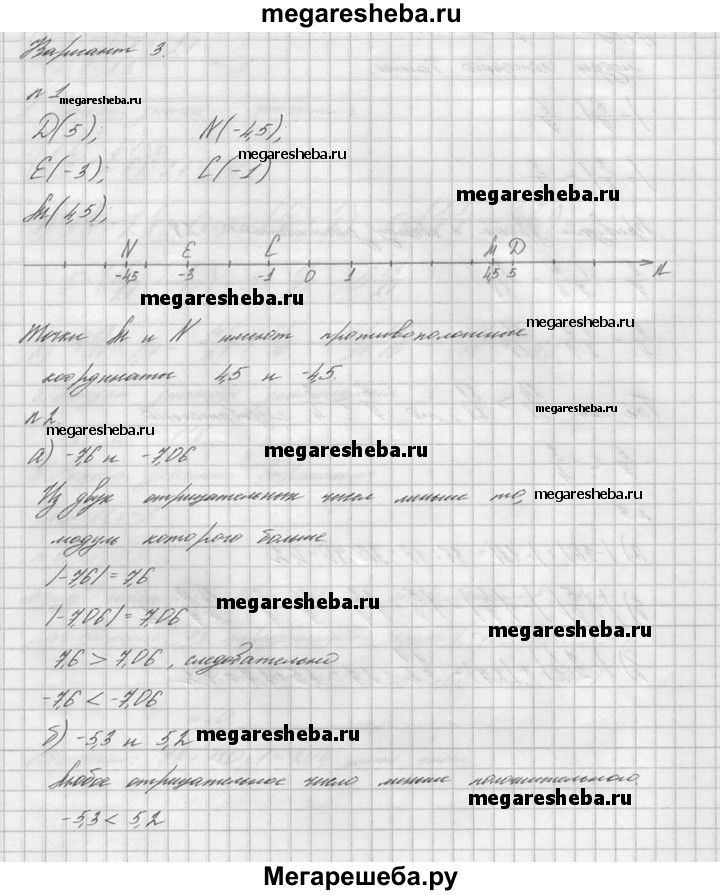 megaresheba.ru
Вариант 3.
n 1
megaresheba.ru
D(5); N(-4,5);
megaresheba.ru
E(-3); C(-1)
megaresheba.ru
M(4,5);
N E C M D
-4,5 -3 -1 0 1 4,5 5 x
megaresheba.ru
megaresheba.ru
Точки M и N имеют противоположные
координаты 4,5 и -4,5.
megaresheba.ru
n 2
megaresheba.ru
а) -7,6 и -7,06
megaresheba.ru
Из двух отрицательных чисел меньше то,
megaresheba.ru
модуль которого больше
|-7,6| = 7,6
megaresheba.ru
|-7,06| = 7,06
megaresheba.ru
7,6 > 7,06, следовательно
-7,6 < -7,06
б) -5,3 и 5,2
megaresheba.ru
Любое отрицательное число меньше положительного.
megaresheba.ru
-5,3 < 5,2
Мегарешеба.ру